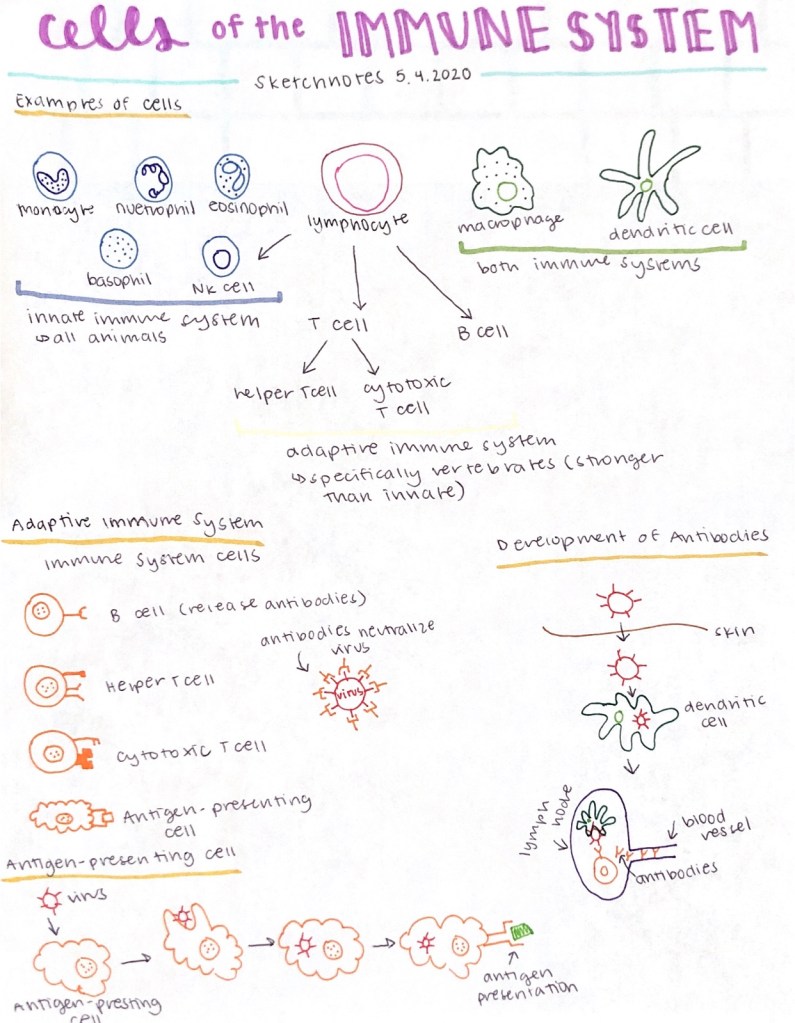 cells of the IMMUNE SYSTEM
sketchnotes 5.4.2020
Examples of cells
monocyte
nuetrophil
eosinophil
lymphocyte
macrophage
dendritic cell
basophil
NK cell
both immune systems
innate immune system
↳all animals
T cell
B cell
helper T cell
cytotoxic
T cell
adaptive immune system
↳specifically vertebrates (stronger
than innate)
Adaptive Immune System
immune system cells
B cell (release antibodies)
Helper T cell
cytotoxic T cell
Antigen-presenting
cell
antibodies neutralize
virus
virus
Development of Antibodies
skin
dendritic
cell
lymph node
blood
vessel
antibodies
Antigen-presenting cell
virus
Antigen-presting
cell
antigen
presentation